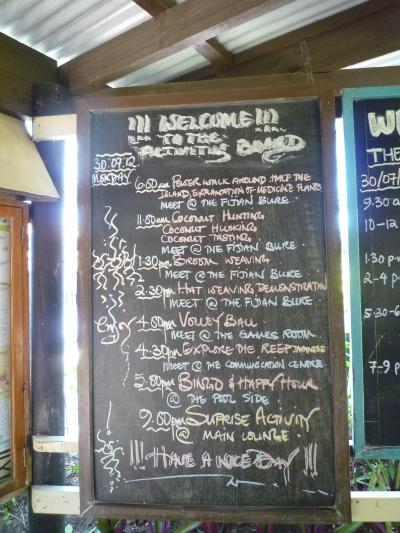 !!! WELCOME !!!
TO THE
ACTIVITIES BOARD
30.07.12
MONDAY
6.50am POWER WALK AROUND HALF THE
ISLAND, EXPLANATION OF MEDICINE PLANTS
MEET @ THE FIJIAN BURE
11.50am COCONUT HUNTING
COCONUT HUSKING
COCONUT TASTING
MEET @ THE FIJIAN BURE.
1.30pm BROOM WEAVING
MEET @ THE FIJIAN BURE
2.30pm HAT WEAVING DEMONSTRATION
MEET @ THE FIJIAN BURE.
4.00pm VOLLEY BALL
MEET @ THE GAMES ROOM
4.30pm EXPLORE THE REEF
MEET @ THE COMMUNICATION CENTRE
5.00pm BINGO & HAPPY HOUR
@ THE POOL SIDE
9.00pm SUPRISE ACTIVITY
@ MAIN LOUNGE.
!!! HAVE A NICE DAY !!!
THE
30/07/
9.30
10-12
1.30 p
2-4 p
5.30-6
7-9 p